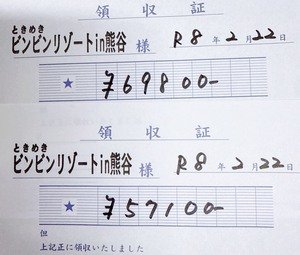 領収証
ときめき
ピンピンリゾートin熊谷 様 R8年2月22日
★ ¥69800-
領収証
ときめき
ピンピンリゾートin熊谷 様 R8年2月22日
★ ¥57100-
但
上記正に領収いたしました